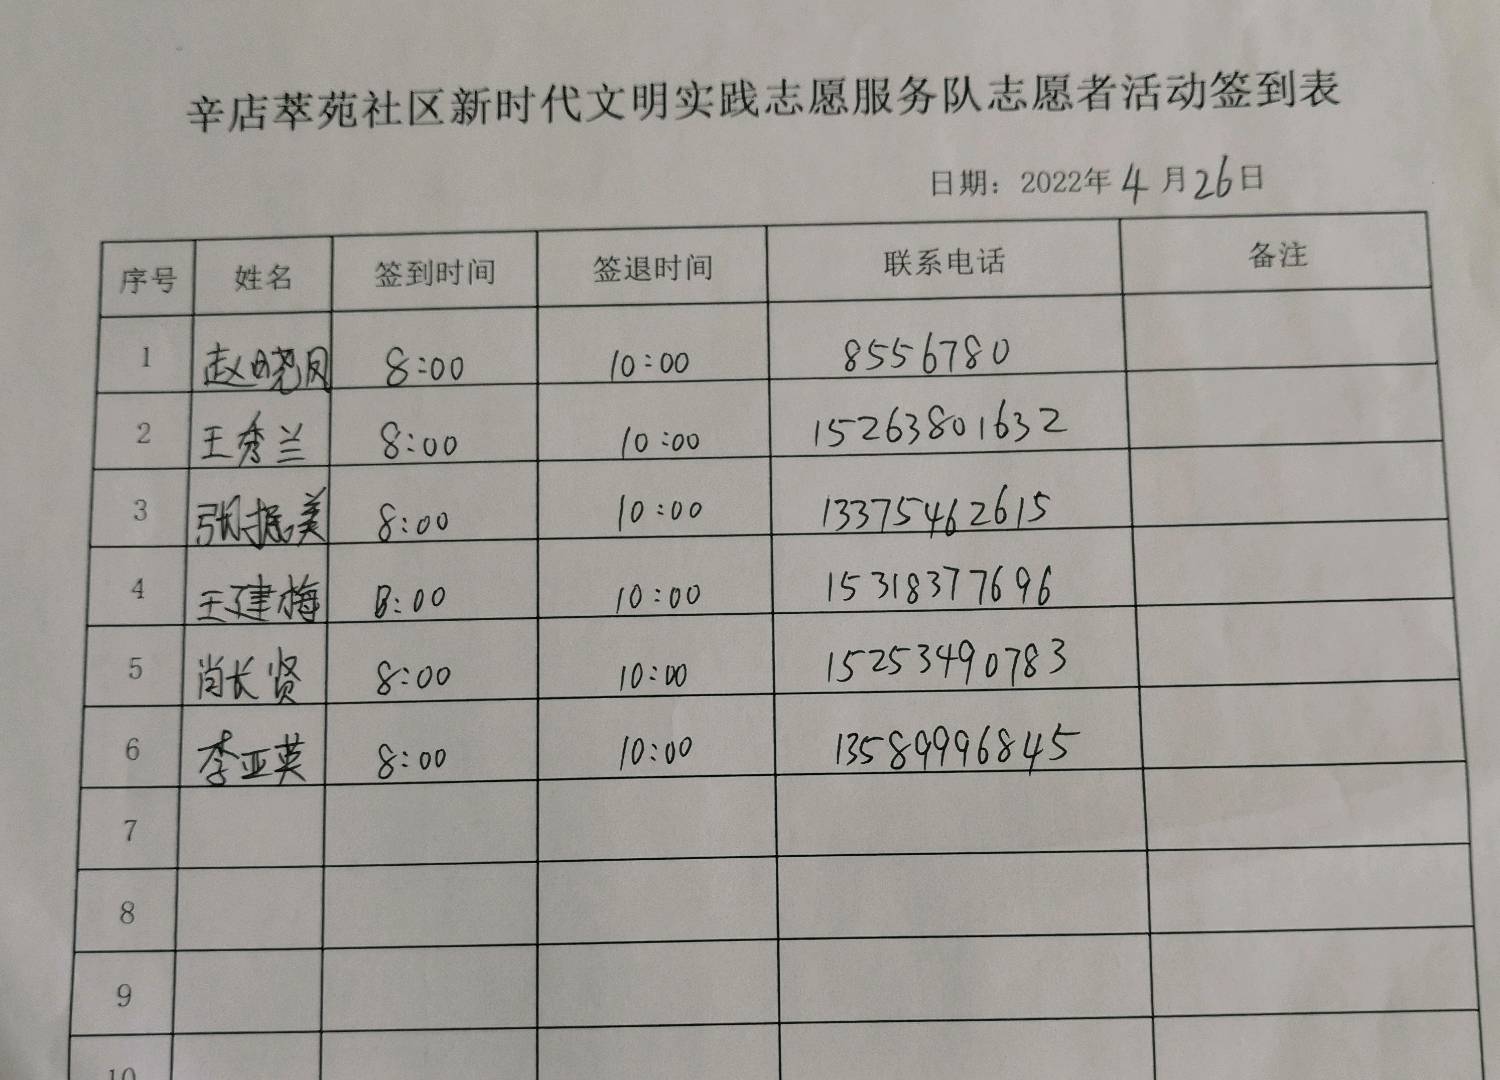 辛店萃苑社区新时代文明实践志愿服务队志愿者活动签到表
日期：2022年4月26日
序号 姓名 签到时间 签退时间 联系电话 备注
1 赵晓凤 8:00 10:00 8556780
2 王秀兰 8:00 10:00 15263801632
3 张振美 8:00 10:00 13375462615
4 王建梅 8:00 10:00 15318377696
5 肖长贤 8:00 10:00 15253490783
6 李亚英 8:00 10:00 13589996845
7
8
9
10